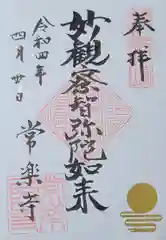 奉拝
妙観察智弥陀如来
令和四年
四月廿日
常楽寺